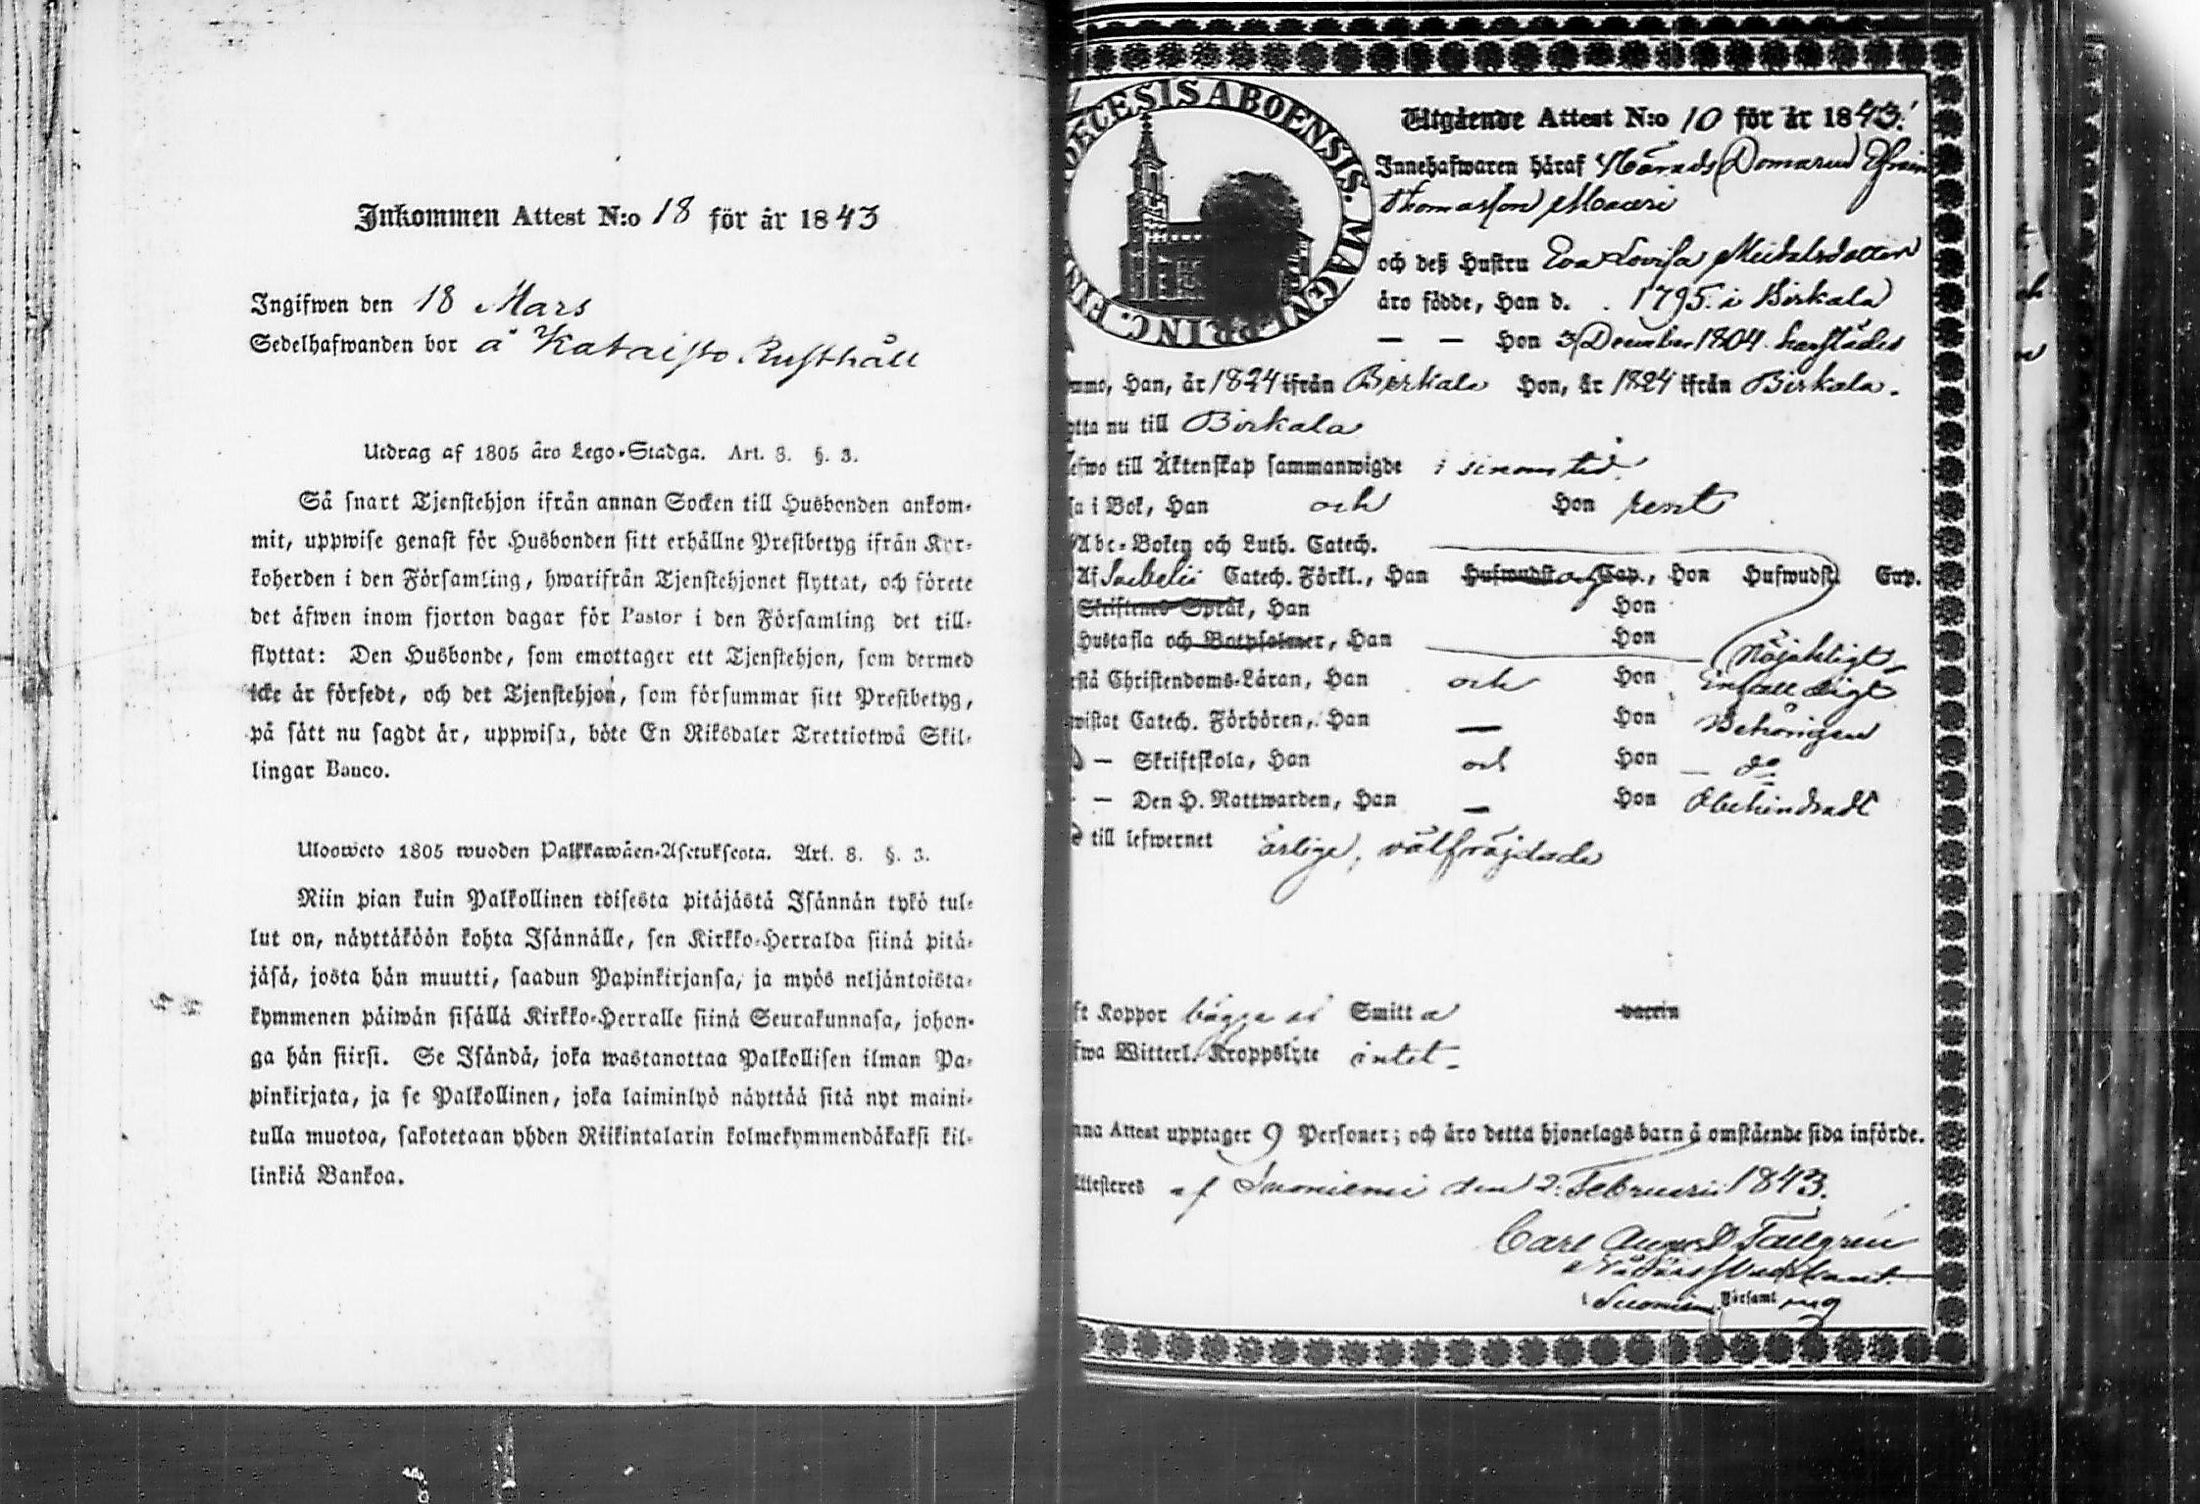 Inkommen Attest N:o 18 för år 1843
Ingifwen den 18 Mars
Sedelhafwanden bor å Kataisto Rusthåll
Utdrag af 1805 års Lego-Stadga. Art. 8. §. 3.
Så snart Tjenstehjon ifrån annan Socken till Husbonden ankom-
mit, uppwise genast för Husbonden sitt erhållne Prestbetyg ifrån Kyr-
koherden i den Församling, hwarifrån Tjenstehjonet flyttat, och förete
det äfwen inom fjorton dagar för Pastor i den Församling det till-
flyttat: Den Husbonde, som emottager ett Tjenstehjon, som dermed
icke är försedt, och det Tjenstehjon, som försummar sitt Prestbetyg,
på sätt nu sagdt är, uppwisa, böte En Riksdaler Trettiotwå Skil-
lingar Banco.
Uloosweto 1805 wuoden Palkkawäen-Asetuksesta. Art. 8. §. 3.
Niin pian kuin Palkollinen toisesta pitäjästä Isännän tykö tul-
lut on, näyttäköön kohta Isännälle, sen Kirkko-Herralda siinä pitä-
jäsä, josta hän muutti, saadun Papinkirjansa, ja myös neljäntoista-
kymmenen päiwän sisällä Kirkko-Herralle siinä Seurakunnasa, johon-
ga hän siirsi. Se Isändä, joka wastanottaa Palkollisen ilman Pa-
pinkirjata, ja se Palkollinen, joka laiminlyö näyttää sitä nyt maini-
tulla muotoa, sakotetaan yhden Riikintalarin kolmekymmendäkaksi kil-
linkiä Bankoa.
OECESIS ABOENSIS. MAGNI. PRINC. FIN
Utgående Attest N:o 10 för år 1843.
Innehafwaren häraf Härads Domaren Efraim
Thomasson Mauri
och deß Hustru Eva Lovisa Michelsdotter
äro födde, Han d. . 1795. i Birkala
— — Hon 3 December 1804. harstädes
mmo, Han, år 1824 ifrån Birkala Hon, år 1824 ifrån Birkala.
ytta nu till Birkala
efwo till Äktenskap sammanwigde i sinom tid.
sa i Bok, Han och Hon rent
Abc-Boken och Luth. Catech.
Af Svebelii Catech. Förkl., Han Hufwudst. og Cap., Hon Hufwudst. Cap.
Skriftenes Språk, Han Hon
Hustafla och Botpsalmer, Han Hon Nöjaktigt
rstå Christendoms-Läran, Han och Hon Enfalldigt
wistat Catech. Förhören, Han — Hon Behörigen
— Skriftskola, Han och Hon — do
— Den H. Nattwarden, Han — Hon Obehindradt
till lefwernet ärlige, välfräjdade
ft Koppor bägge af Smitta vaccin
fwa Witterl. Kroppslyte intet
nna Attest upptager 9 Personer; och äro detta hjonelags barn å omstående sida införde.
Attesteres af Suoniemi den 2. Februarii 1843.
Carl August Tallgren
i Suoniemi Församl ing